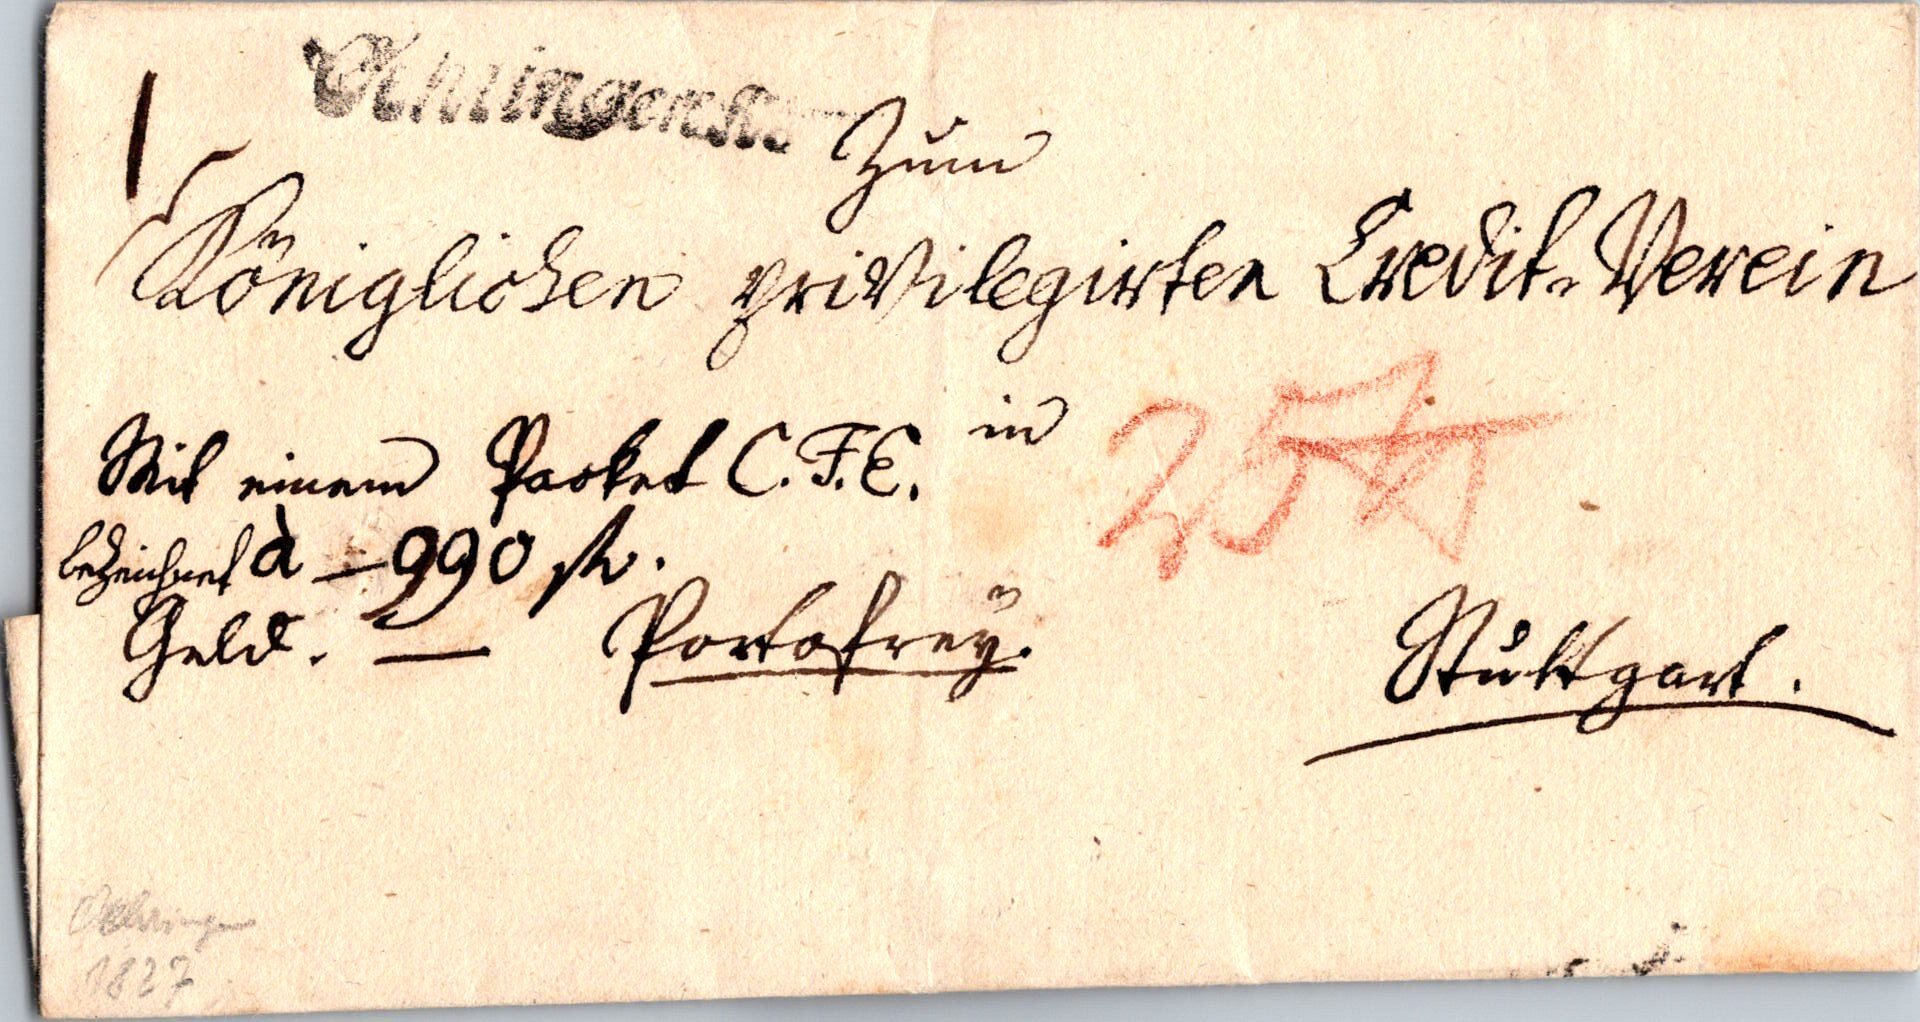 Oehringen
Zum
Königlichen privilegirten Credit-Verein
in
Mit einem Packet C. F. E.
bezeichnet à — 990 fl.
Geld. — Portofrey.
Stuttgart.
25
Oehringen
1827